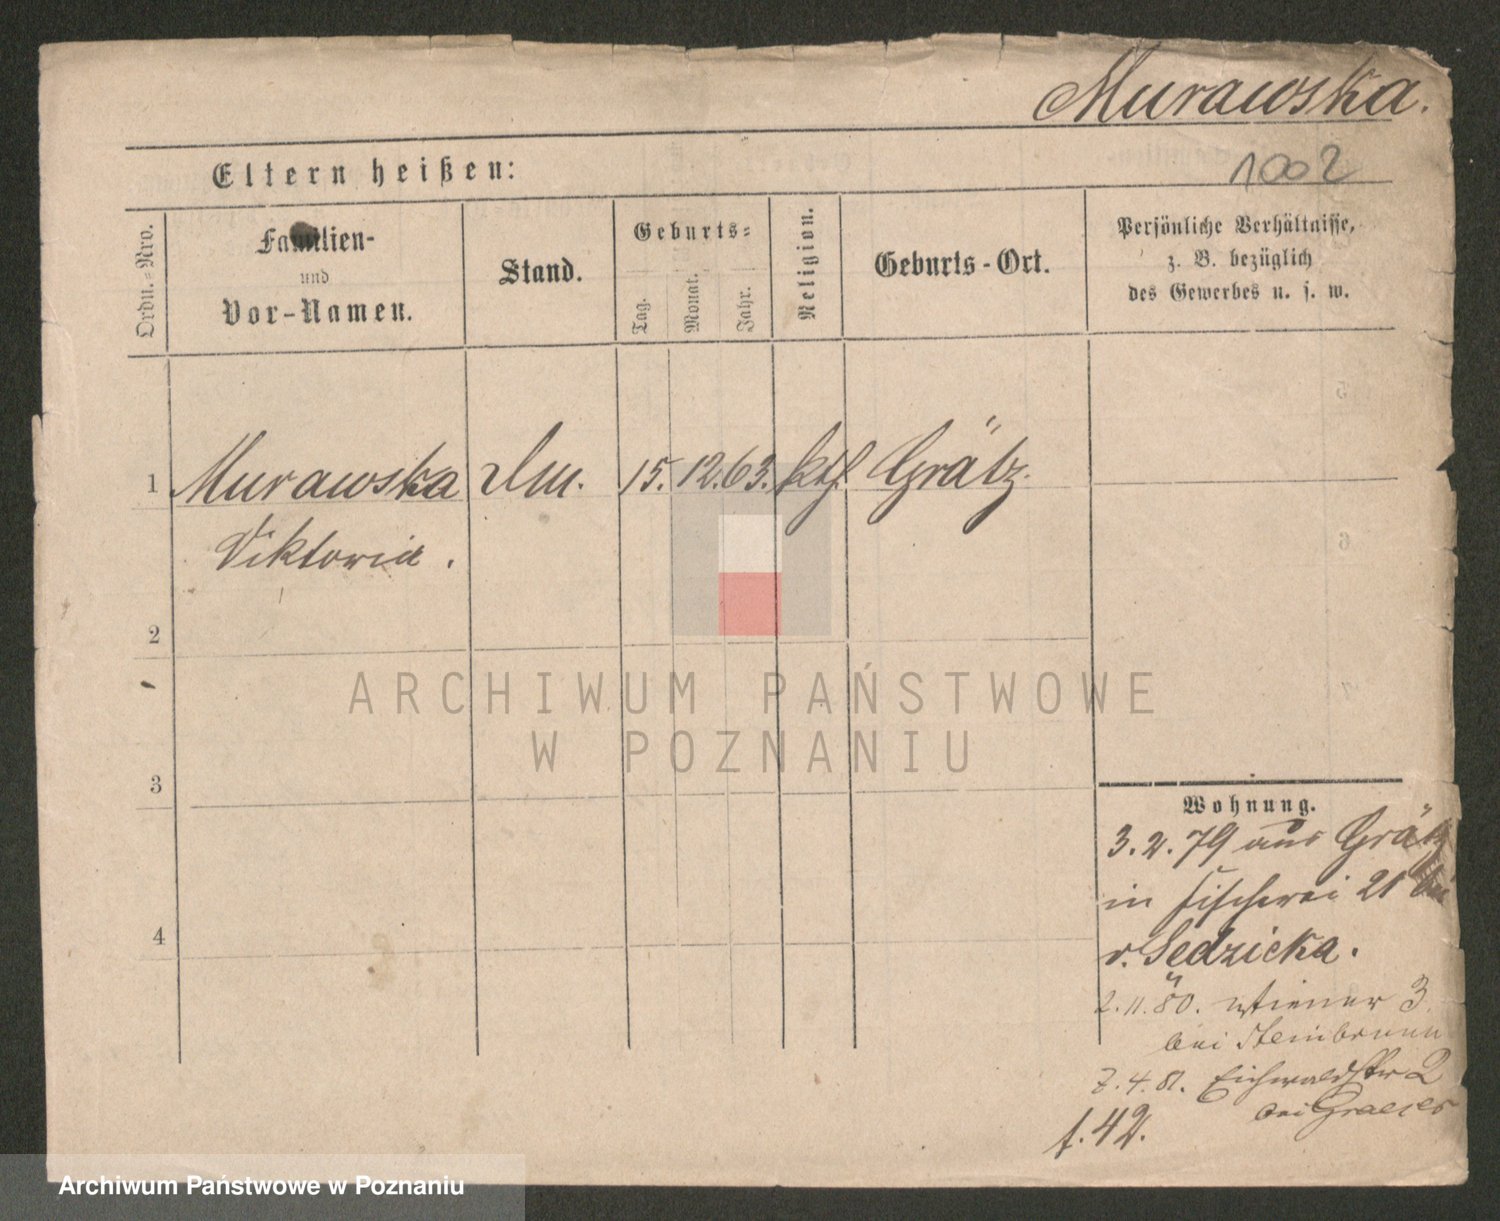 Murawska.
1002
Eltern heißen:
Ordn.=Nro.
Familien-
und
Vor-Namen.
Stand.
Geburts=
Tag.
Monat.
Jahr.
Religion.
Geburts-Ort.
Persönliche Verhältnisse,
z. B. bezüglich
des Gewerbes u. s. w.
1 Murawska 15. 12. 63. kth. Grätz.
Viktoria.
2
3
4
ARCHIWUM PAŃSTWOWE
W POZNANIU
Wohnung.
3.2.79 aus Grätz
in Fischerei 21 bei
v. Sedzicka.
2.11.80. Wiener 3.
bei Steinbrunn
7.4.81. Eichwaldstr 2
bei
f. 42.
Archiwum Państwowe w Poznaniu